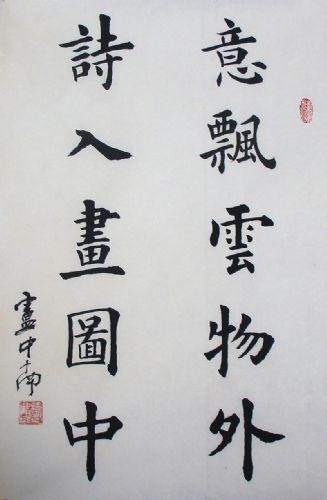 意飄雲物外
詩入畫圖中
盧中南